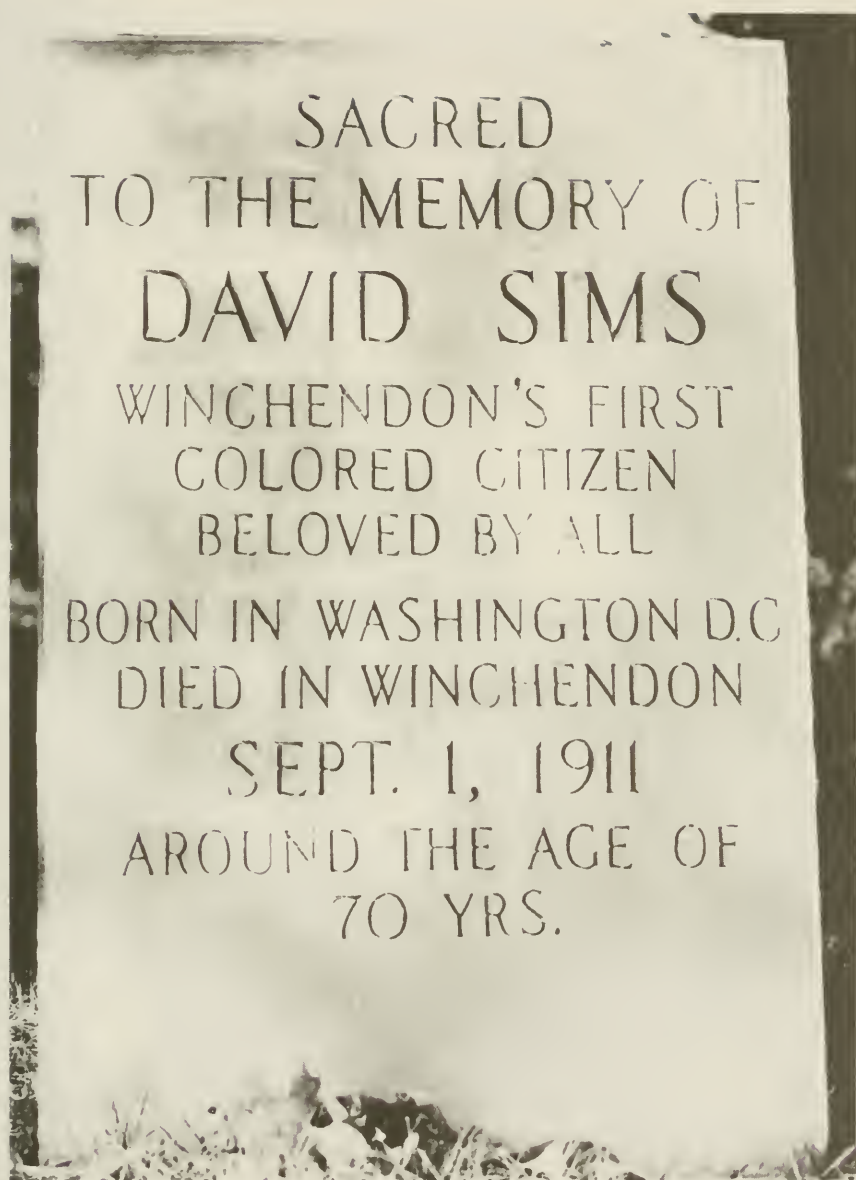 SACRED
TO THE MEMORY OF
DAVID SIMS
WINCHENDON'S FIRST
COLORED CITIZEN
BELOVED BY ALL
BORN IN WASHINGTON D.C
DIED IN WINCHENDON
SEPT. 1, 1911
AROUND THE AGE OF
70 YRS.